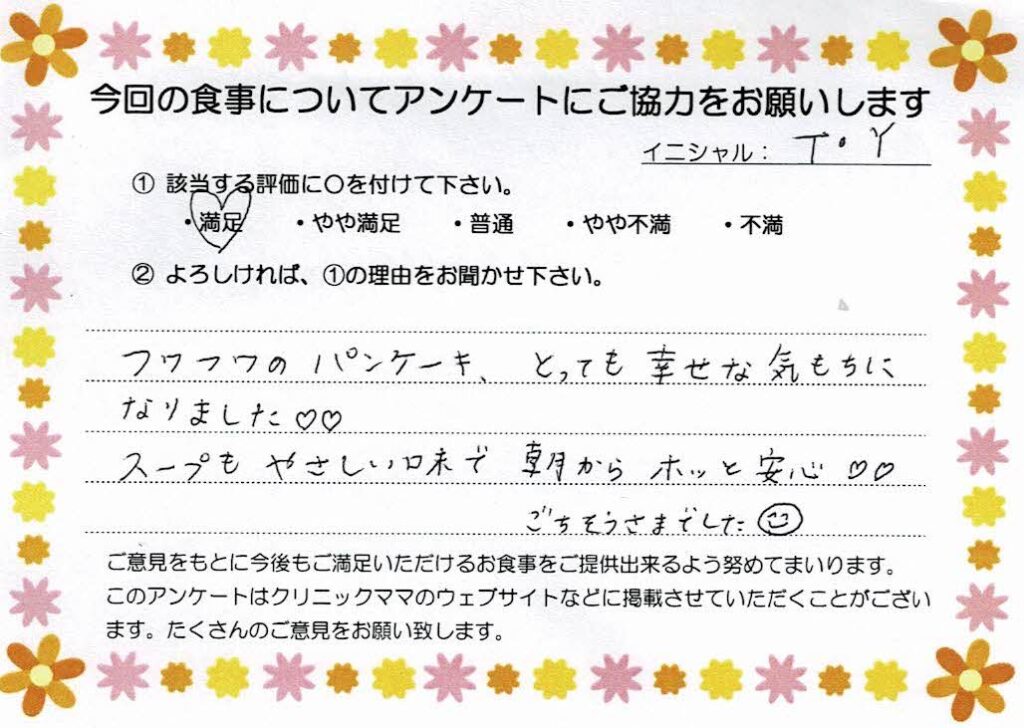 今回の食事についてアンケートにご協力をお願いします
イニシャル： T・Y
① 該当する評価に〇を付けて下さい。
・満足 ・やや満足 ・普通 ・やや不満 ・不満
② よろしければ、①の理由をお聞かせ下さい。
フワフワの パンケーキ、 とっても 幸せな 気もちに
なりました♡♡
スープも やさしい味で 朝から ホッと 安心 ♡♡
ごちそうさまでした☺
ご意見をもとに今後もご満足いただけるお食事をご提供出来るよう努めてまいります。
このアンケートはクリニックママのウェブサイトなどに掲載させていただくことがござい
ます。たくさんのご意見をお願い致します。